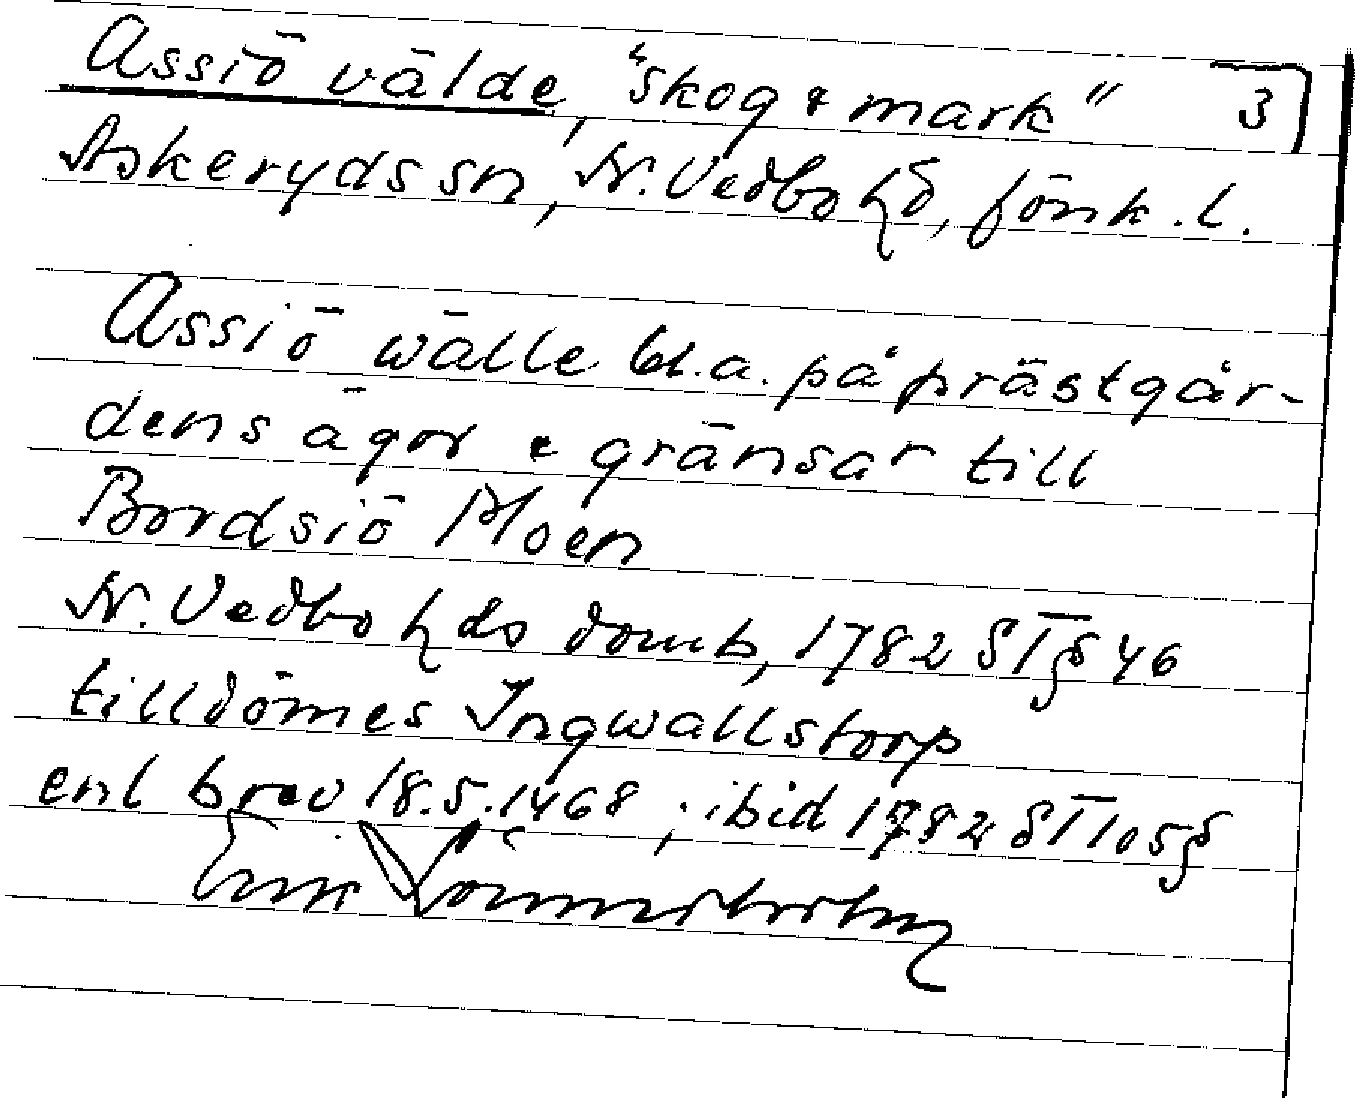 Assiö välde, "skog & mark" 3
Askeryds sn, N. Vedbo hd, Jönk. l.
Assiö wälle bl.a. på prästgår-
dens ägor & gränsar till
Bordsiö Moen
N. Vedbo hds domb, 1782 ST § 46
tilldömes Ingwallstorp
enl brev 18.5.1468, ibid 1782 ST 105 §